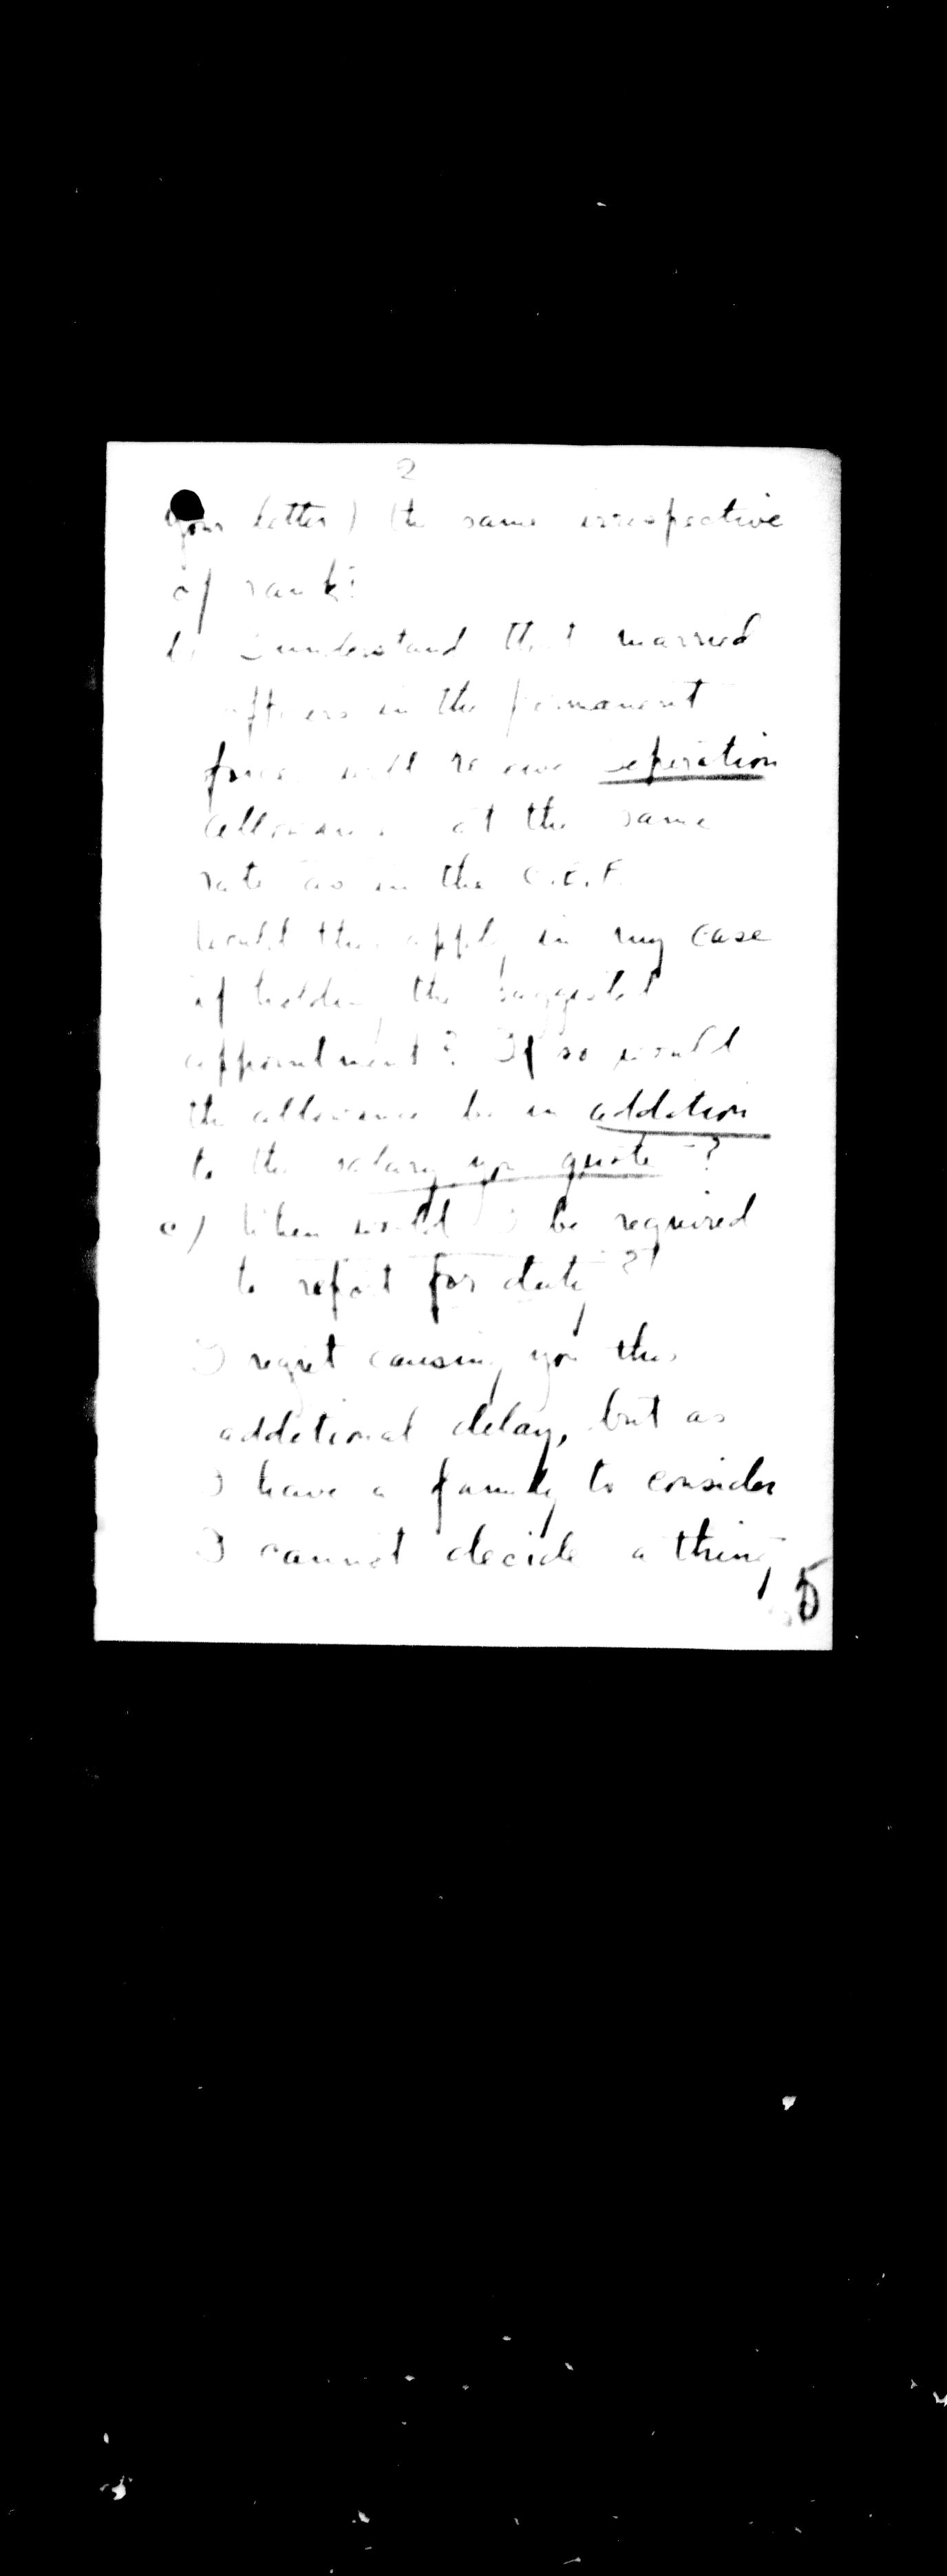 2
your letter) the same irrespective
of rank?
b) I understand that married
officers in the permanent
force will receive seperation
allowance at the same
rate as in the C.E.F.
Would this apply in my case
if holding the suggested
appointment? If so would
the allowance be in addition
to the salary you quote?
c) When would I be required
to report for duty?
I regret causing you this
additional delay, but as
I have a family to consider
I cannot decide a thing
5